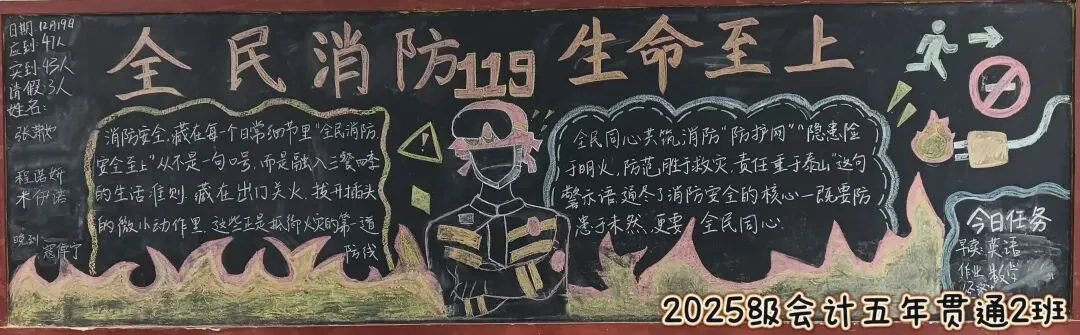 日期:12月19日
应到:47人
实到:43人
请假:3人
姓名:
程诺妍
米伊诺
晚到
全民消防119生命至上
消防安全,藏在每个日常细节里"全民消防
安全至上"从不是一句口号,而是融入三餐四季
的生活准则.藏在出门关火、拔开插头
的微小动作里.这些正是抵御火灾的第一道
防线
全民同心共筑消防"防护网""隐患险
于明火,防范胜于救灾,责任重于泰山"这句
警示语,道尽了消防安全的核心—既要防
患于未然,更要全民同心.
今日任务
早读:英语
作业:数学
2025级会计五年贯通2班